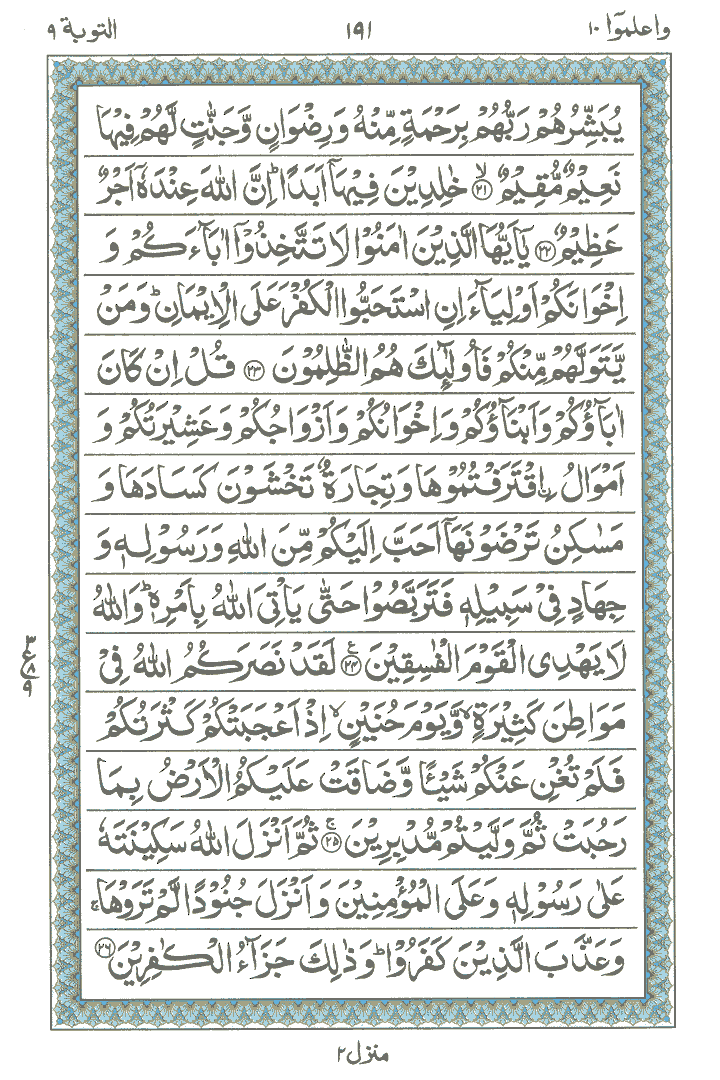 واعلموٓا ١٠ ١٩١ التوبة ٩
يُبَشِّرُهُمْ رَبُّهُمْ بِرَحْمَةٍ مِّنْهُ وَرِضْوَانٍ وَّجَنّٰتٍ لَّهُمْ فِيْهَا
نَعِيْمٌ مُّقِيْمٌ ۙ﴿٢١﴾ خٰلِدِيْنَ فِيْهَاۤ اَبَدًا ؕ اِنَّ اللّٰهَ عِنْدَهٗۤ اَجْرٌ
عَظِيْمٌ ﴿٢٢﴾ يٰۤاَيُّهَا الَّذِيْنَ اٰمَنُوْا لَا تَتَّخِذُوْۤا اٰبَآءَكُمْ وَ
اِخْوَانَكُمْ اَوْلِيَآءَ اِنِ اسْتَحَبُّوا الْكُفْرَ عَلَى الْاِيْمَانِ ؕ وَمَنْ
يَّتَوَلَّهُمْ مِّنْكُمْ فَاُولٰٓئِكَ هُمُ الظّٰلِمُوْنَ ﴿٢٣﴾ قُلْ اِنْ كَانَ
اٰبَآؤُكُمْ وَاَبْنَآؤُكُمْ وَاِخْوَانُكُمْ وَاَزْوَاجُكُمْ وَعَشِيْرَتُكُمْ وَ
اَمْوَالُ ۨاقْتَرَفْتُمُوْهَا وَتِجَارَةٌ تَخْشَوْنَ كَسَادَهَا وَ
مَسٰكِنُ تَرْضَوْنَهَاۤ اَحَبَّ اِلَيْكُمْ مِّنَ اللّٰهِ وَرَسُوْلِهٖ وَ
جِهَادٍ فِيْ سَبِيْلِهٖ فَتَرَبَّصُوْا حَتّٰى يَاْتِيَ اللّٰهُ بِاَمْرِهٖ ؕ وَاللّٰهُ
لَا يَهْدِى الْقَوْمَ الْفٰسِقِيْنَ ﴿٢٤﴾ۧ لَقَدْ نَصَرَكُمُ اللّٰهُ فِيْ
مَوَاطِنَ كَثِيْرَةٍ ۙ وَّيَوْمَ حُنَيْنٍ ۙ اِذْ اَعْجَبَتْكُمْ كَثْرَتُكُمْ
فَلَمْ تُغْنِ عَنْكُمْ شَيْـًٔا وَّضَاقَتْ عَلَيْكُمُ الْاَرْضُ بِمَا
رَحُبَتْ ثُمَّ وَلَّيْتُمْ مُّدْبِرِيْنَ ۚ﴿٢٥﴾ ثُمَّ اَنْزَلَ اللّٰهُ سَكِيْنَتَهٗ
عَلٰى رَسُوْلِهٖ وَعَلَى الْمُؤْمِنِيْنَ وَاَنْزَلَ جُنُوْدًا لَّمْ تَرَوْهَا ۚ
وَعَذَّبَ الَّذِيْنَ كَفَرُوْا ؕ وَذٰلِكَ جَزَآءُ الْكٰفِرِيْنَ ﴿٢٦﴾
٣
ع ٨
٩
منزل ٢